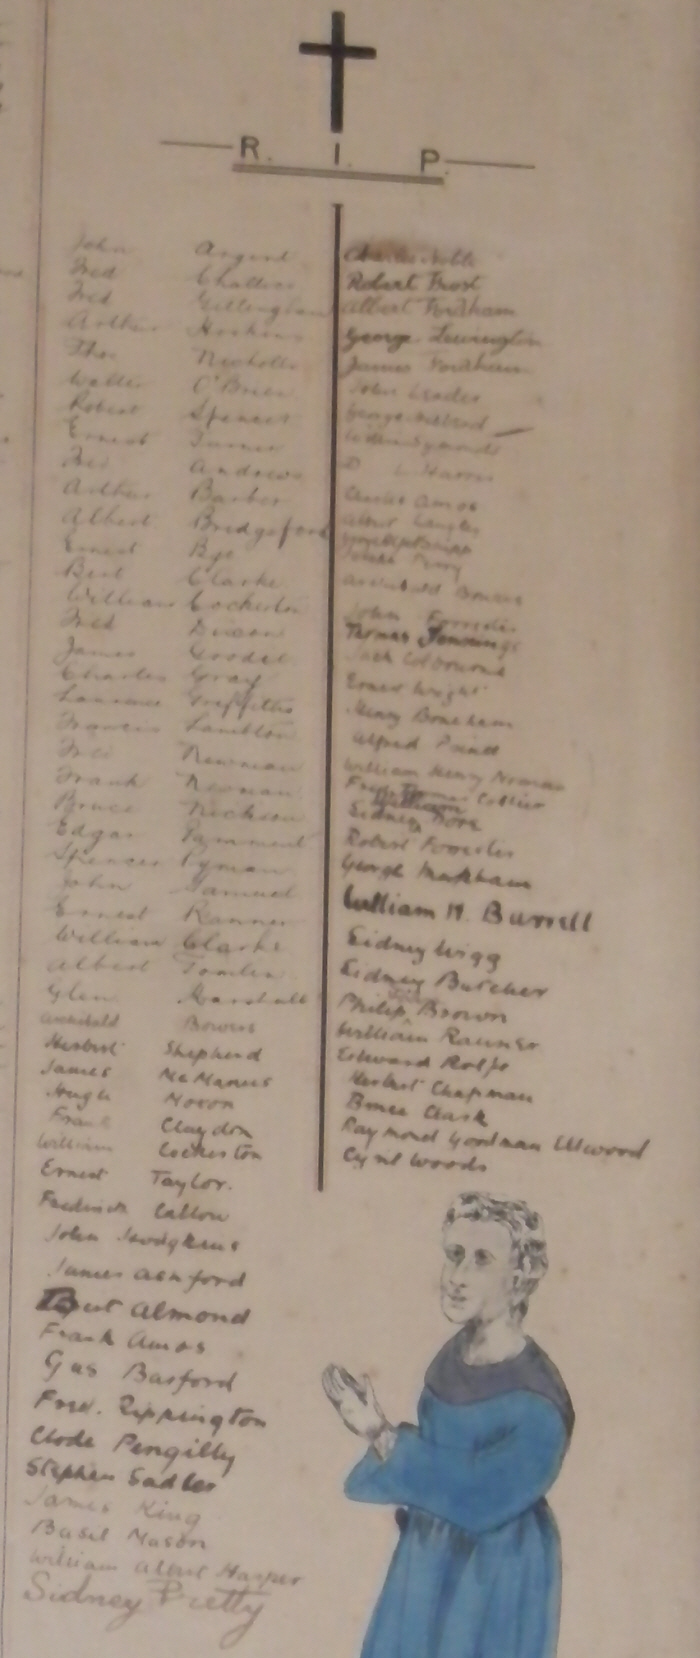 R. I. P.
John Argent
Fred Challis
Fred Gillingham
Arthur Hoskins
Thos Nicholls
Walter O'Brien
Robert Spencer
Ernest Turner
Fred Andrews
Arthur Barber
Albert Bridgeford
Ernest Bye
Bert Clarke
William Cockerton
Fred Dixon
James Goodel
Charles Gray
Laurence Griffiths
Francis Lambton
Fred Newman
Frank Newman
Bruce
Edgar Pamment
Spencer Pyman
John Samuel
Ernest Ranner
William Clarke
Albert Tomlin
Glen Marshall
Archibald Bowers
Herbert Shepherd
James McManus
Hugh Moron
Frank Claydon
William Cockerton
Ernest Taylor.
Frederick Callow
John Hodgkins
James Ashford
Bert Almond
Frank Amos
Gus Basford
Fred. Rippington
Clode Pengilly
Stephen Sadler
James King
Basil Mason
William Albert Harper
Sidney Pretty
Charles Noble
Robert Frost
Albert Fordham
George Lewington
James Fordham
John Leader
George
William Symonds
D L Harris
Charles Amos
Albert Langley
Tripp
James Perry
Archibald Bowers
John Forrester
Thomas Jennings
Jack Colbourne
Ernest Wright
Henry Boneham
Alfred
William Henry Norman
Thomas Collier
William
Sidney Dore
Robert Forrester
George Markham
William H. Burrell
Sidney Wigg
Sidney Butcher
Philip Brown
William Ranner
Edward Rolfe
Herbert Chapman
Bruce Clark
Raymond Goodman Ullwood
Cyril Woods